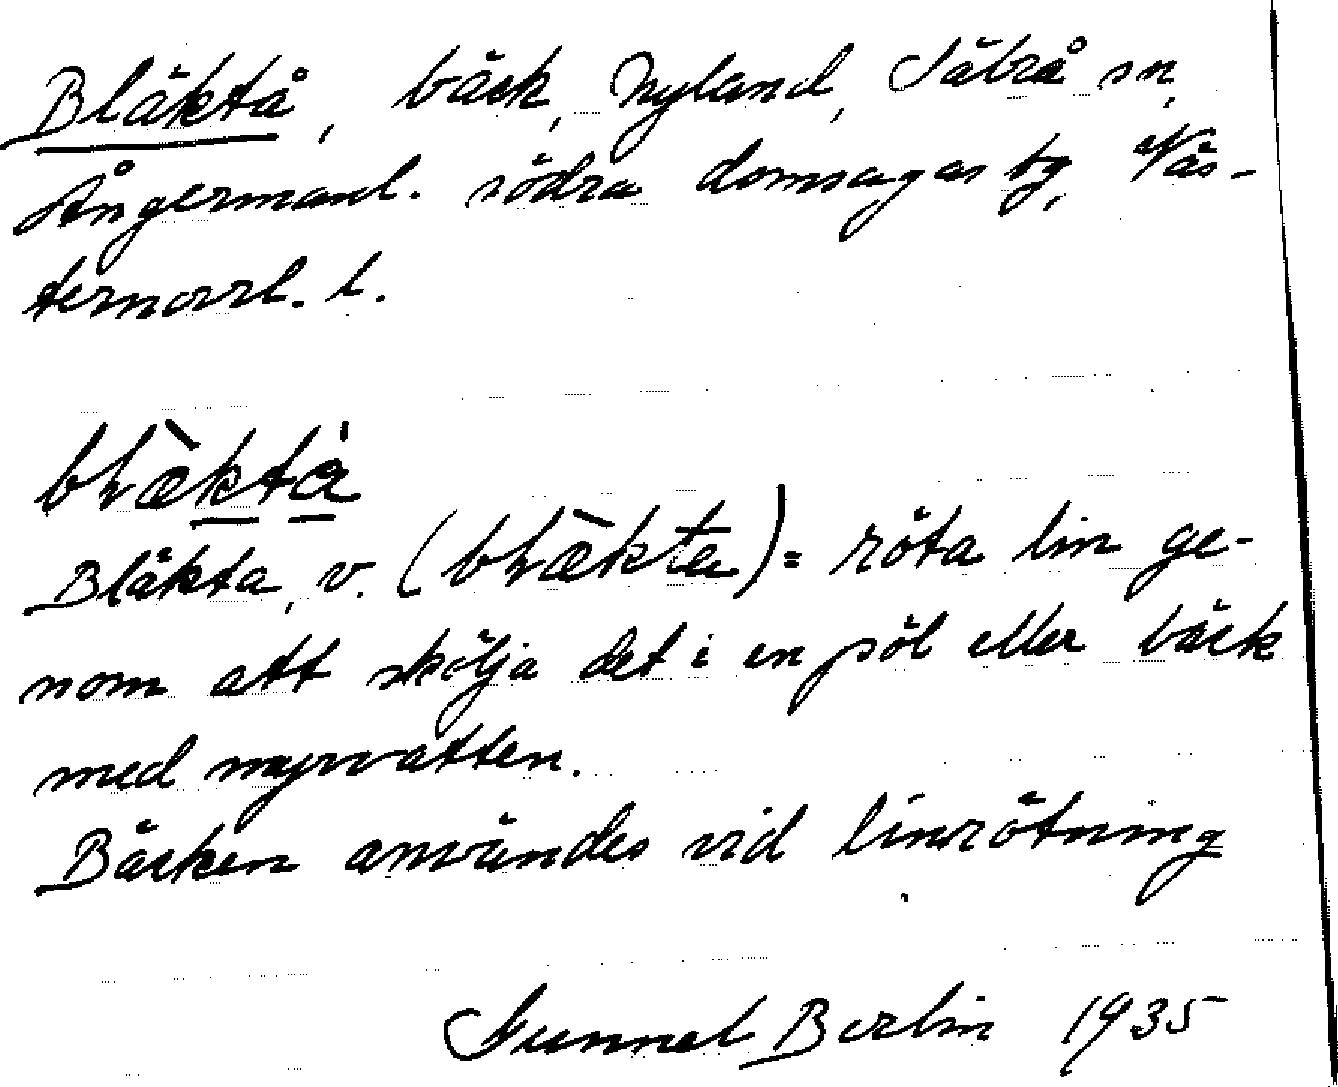 Bläktå, bäck, Nyland, Säbrå sn,
Ångermanl. södra domsagas tg, Väs-
ternorrl. l.
Bläkta, v. (                ) = röta lin ge-
nom att skölja det i en pöl eller bäck
med myrvatten.
Bäcken användes vid linrötning
Gunnel Berlin 1935